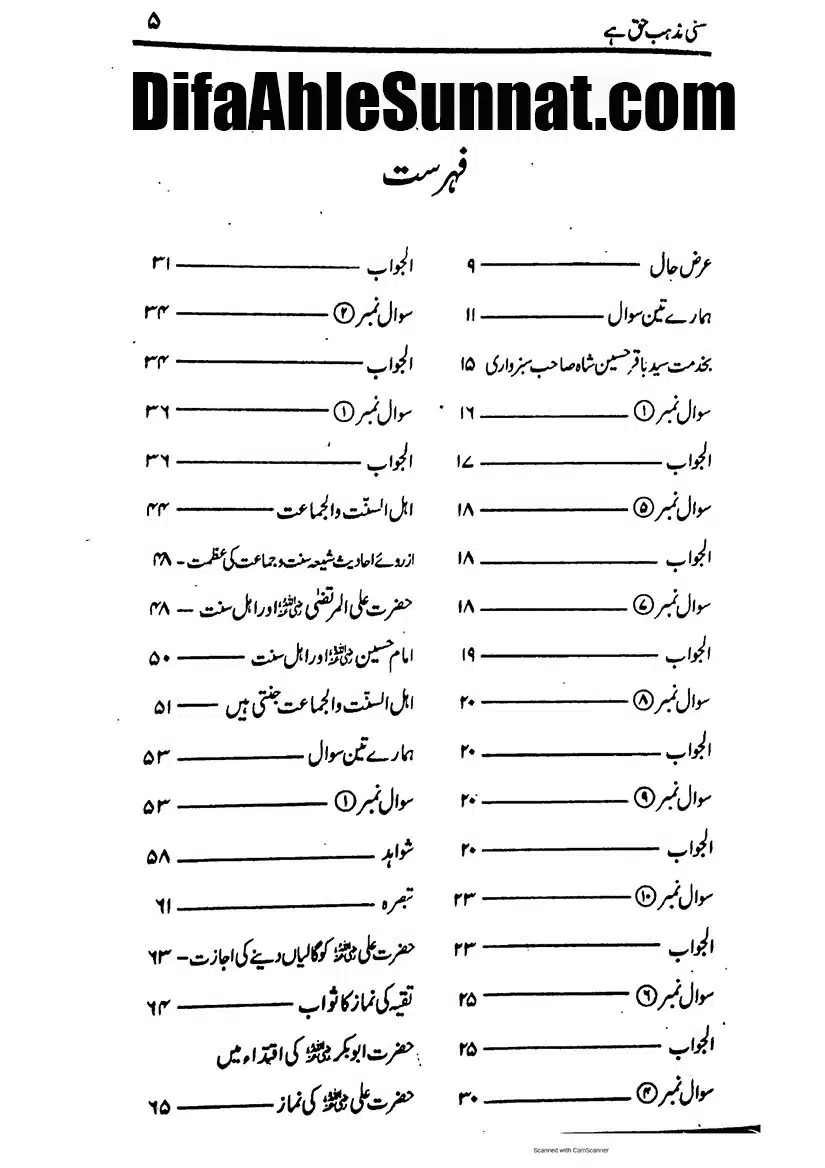 سنی مذہب حق ہے ۵
DifaAhleSunnat.com
فہرست
عرض حال ۹
ہمارے تین سوال ۱۱
بخدمت سید باقر حسین شاہ صاحب سبزواری ۱۵
سوال نمبر ① ۱۶
الجواب ۱۷
سوال نمبر ⑤ ۱۸
الجواب ۱۸
سوال نمبر ⑦ ۱۸
الجواب ۱۹
سوال نمبر ⑧ ۲۰
الجواب ۲۰
سوال نمبر ⑨ ۲۰
الجواب ۲۰
سوال نمبر ⑩ ۲۳
الجواب ۲۳
سوال نمبر ⑥ ۲۵
الجواب ۲۵
سوال نمبر ④ ۳۰
الجواب ۳۱
سوال نمبر ② ۳۴
الجواب ۳۴
سوال نمبر ① ۳۶
الجواب ۳۶
اہل السنّت والجماعت ۴۴
ازروئے احادیث شیعہ سنت و جماعت کی عظمت - ۴۸
حضرت علی المرتضٰی رضی اللہ عنہ اور اہل سنت ۴۸
امام حسین رضی اللہ عنہ اور اہل سنت ۵۰
اہل السنّت والجماعت جنتی ہیں ۵۱
ہمارے تین سوال ۵۳
سوال نمبر ① ۵۳
شواہد ۵۸
تبصرہ ۶۱
حضرت علی رضی اللہ عنہ کو گالیاں دینے کی اجازت - ۶۳
تقیہ کی نماز کا ثواب ۶۴
حضرت ابوبکر رضی اللہ عنہ کی اقتداء میں
حضرت علی رضی اللہ عنہ کی نماز ۶۵
Scanned with CamScanner